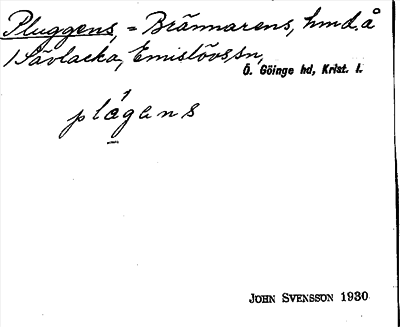 Pluggens, = Brännarens, hmd. å
/ Sävlacka, Emislövs sn,
Ö. Göinge hd, Krist. l.
plågens
JOHN SVENSSON 1930